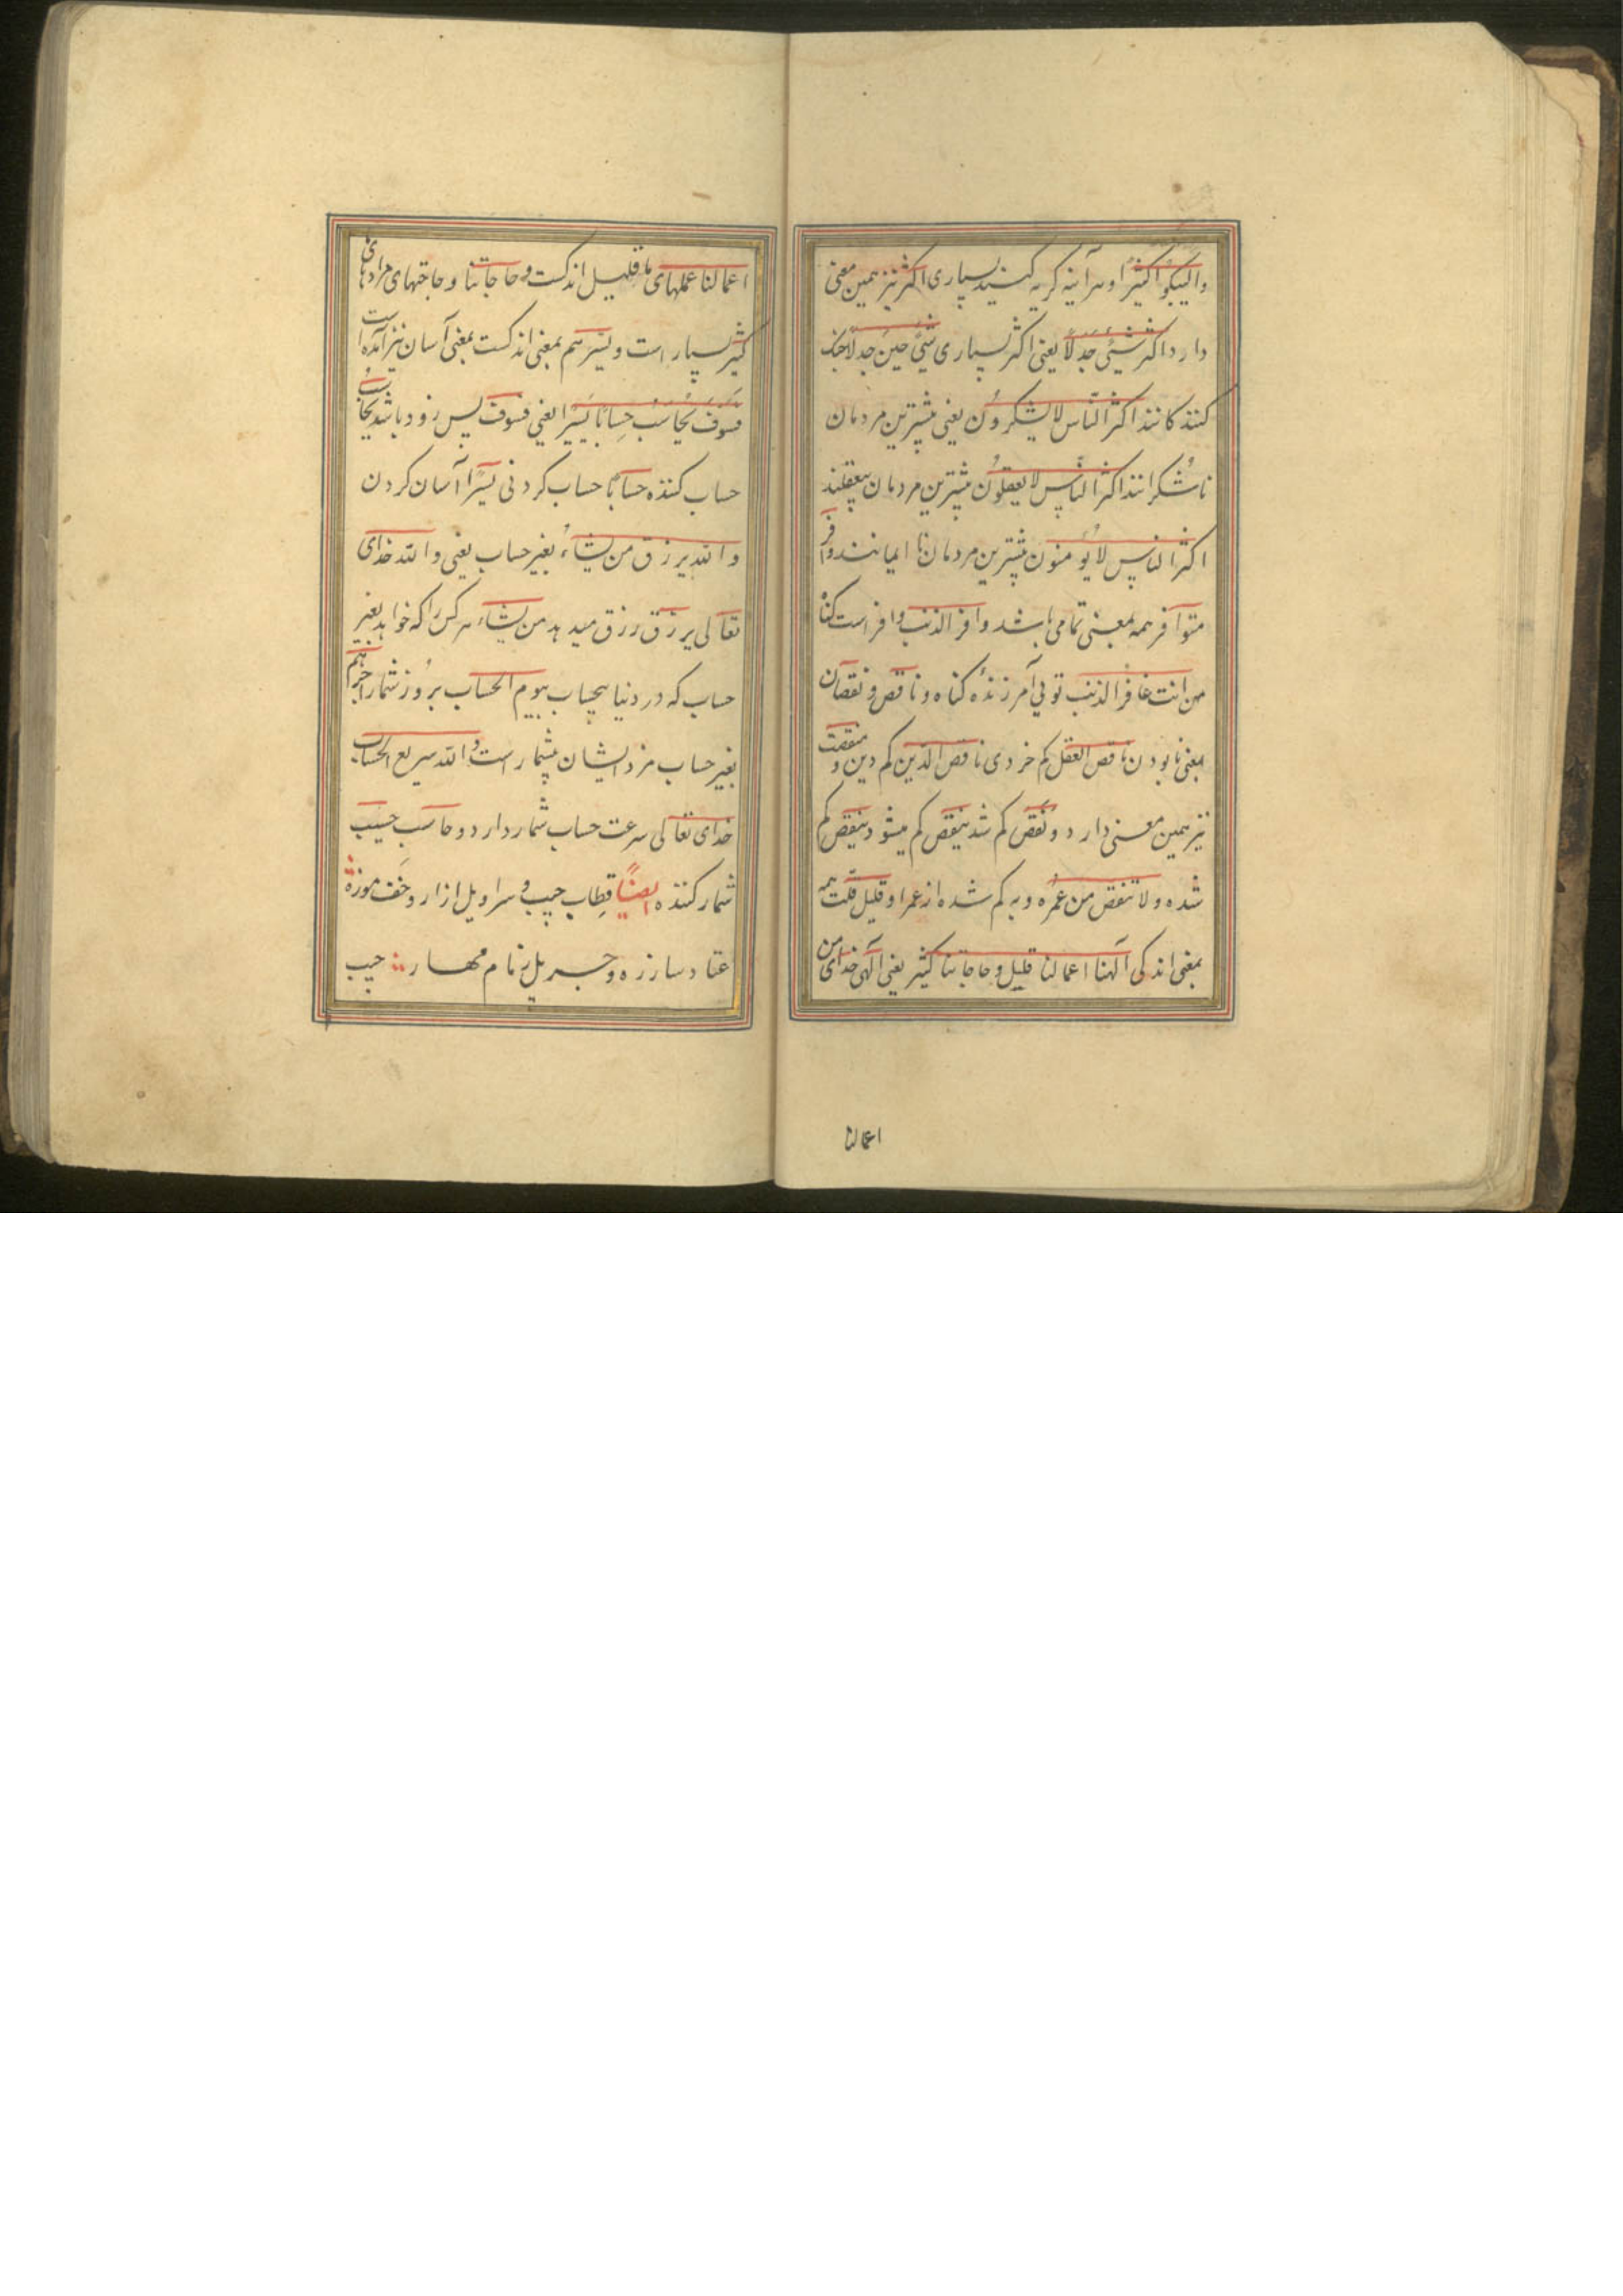 ولیبکوا کثیرا وهرآینه گریه کنید بسیاری اکثر نیز همین معنی
دارد اکثر شیئ جدلا یعنی اکثر بسیاری شیئ چین جدلا جنک
کنندکانند اکثر الناس لا یشکرون یعنی بیشترین مردمان
ناشکرانند اکثر الناس لا یعقلون بیشترین مردمان بیعقلند
اکثر الناس لا یومنون بیشترین مردمان نا ایمانند وافر
متوافر همه بمعنی تمامی باشد وافر الذنب وافر است کناه
من انت غافر الذنب تویی آمرزنده کناه و ناقص و نقصان
بمعنی نابودن ناقص العقل کم خردی ناقص الدین کم دین و منقصت
نیز همین معنی دارد و نقص کم شد ینقص کم میشود ینقص کم
شده ولا تنقص من عمره و به کم شده از عمر او قلیل قلت همه
بمعنی اندکی آلهنا اعمالنا قلیل وحاجاتنا کثیر یعنی الهی خدای من
اعمالنا
اعمالنا عملهای ما قلیل اندکست و حاجاتنا وحاجتهای مرادهای
کثیر بسیار است و یسیر هم بمعنی اندکست بمعنی آسان نیز آمده است
فسوف یحاسب حسابا یسیرا یعنی فسوف پس زود باشد یحاسب
حساب کننده حسابا حساب کردنی یسیرا آسان کردن
والله یرزق من یشاء بغیر حساب یعنی والله خدای
تعالی یرزق رزق میدهد من یشاء هر کس را که خواهد بغیر
حساب که در دنیا بیحساب بیوم الحساب بروز شمار اجرهم
بغیر حساب مزد ایشان بیشمار است والله سریع الحساب
خدای تعالی سرعت حساب شمار دارد و حاسب حسیب
شمار کننده ایضا قطاب جیب و سراویل ازار و خف موزه
عتاد ساز زه و جریل زمام مهار جیب